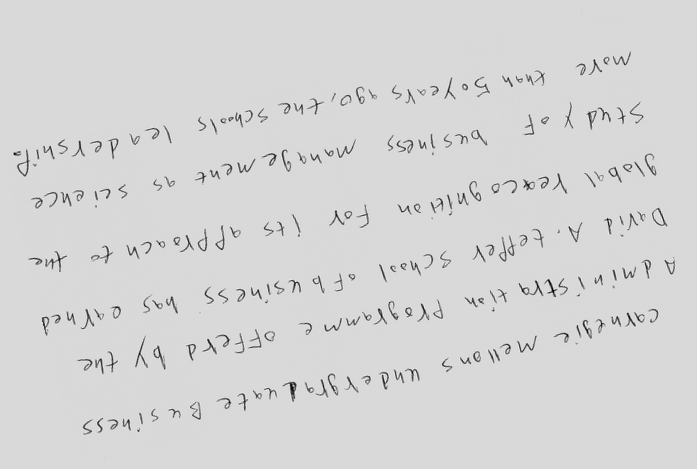 carnegie mellons undergraduate Business
Administration programme offerd by the
David A. tepper school of business has earned
global reacognition for its approach to the
study of business management as science
more than 50 years ago, the schools leadership.